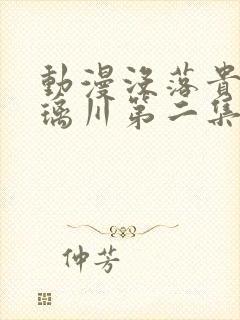 動漫沒落貴
璃川第二集
仲芳